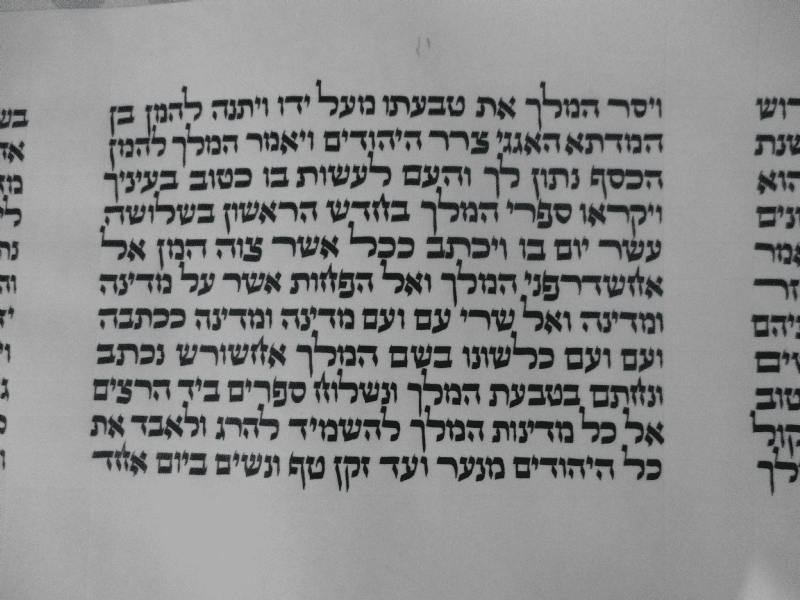 ויסר המלך את טבעתו מעל ידו ויתנה להמן בן
המדתא האגגי צרר היהודים ויאמר המלך להמן
הכסף נתון לך והעם לעשות בו כטוב בעיניך
ויקראו ספרי המלך בחדש הראשון בשלושה
עשר יום בו ויכתב ככל אשר צוה המן אל
אחשדרפני המלך ואל הפחות אשר על מדינה
ומדינה ואל שרי עם ועם מדינה ומדינה ככתבה
ועם ועם כלשונו בשם המלך אחשורש נכתב
ונחתם בטבעת המלך ונשלוח ספרים ביד הרצים
אל כל מדינות המלך להשמיד להרג ולאבד את
כל היהודים מנער ועד זקן טף ונשים ביום אחד